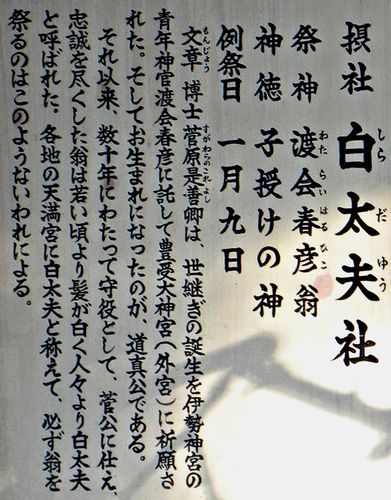 摂社 白太夫社
しら だ ゆう
祭神 渡会春彦翁
わた らい はる ひこ
神徳 子授けの神
例祭日 一月九日
文章博士菅原是善卿は、世継ぎの誕生を伊勢神宮の
もんじょう すがわらのこれよし
青年神官渡会春彦に託して豊受大神宮(外宮)に祈願さ
れた。そしてお生まれになったのが、道真公である。
それ以来、数十年にわたって守役として、菅公に仕え、
忠誠を尽くした翁は若い頃より髪が白く人々より白太夫
と呼ばれた。各地の天満宮に白太夫と称えて、必ず翁を
祭るのはこのようないわれによる。